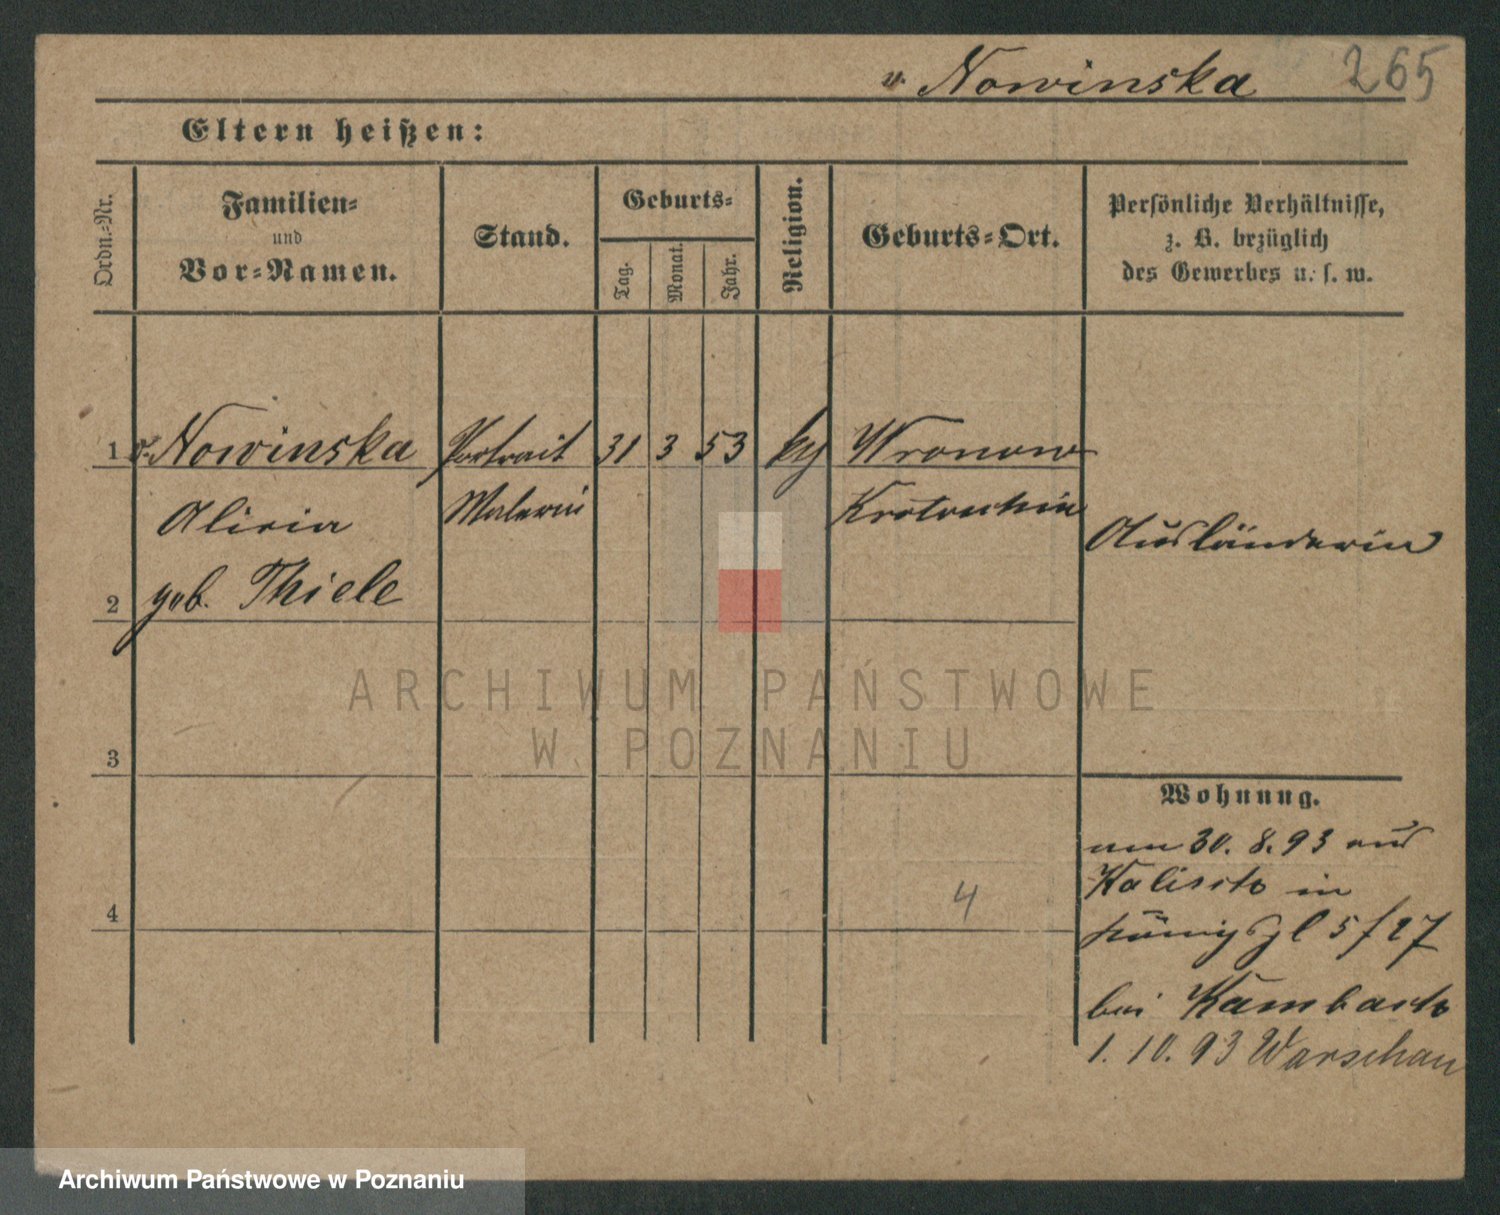 v. Nowinska 265
Eltern heißen:
Ordn.-Nr.
Familien-
und
Vor-Namen.
Stand.
Geburts-
Tag. Monat. Jahr.
Religion.
Geburts-Ort.
Persönliche Verhältnisse,
z. B. bezüglich
des Gewerbes u. s. w.
1 v. Nowinska Portrait 31 3 53 Wronow
Alicia Malerin Krotoschin
Ausländerin
2 geb. Thiele
ARCHIWUM PAŃSTWOWE
W POZNANIU
3
Wohnung.
am 30. 8. 93 aus
Kalisch in
4 4
Königspl 5/27
bei Kambach
1. 10. 93 Warschau
Archiwum Państwowe w Poznaniu